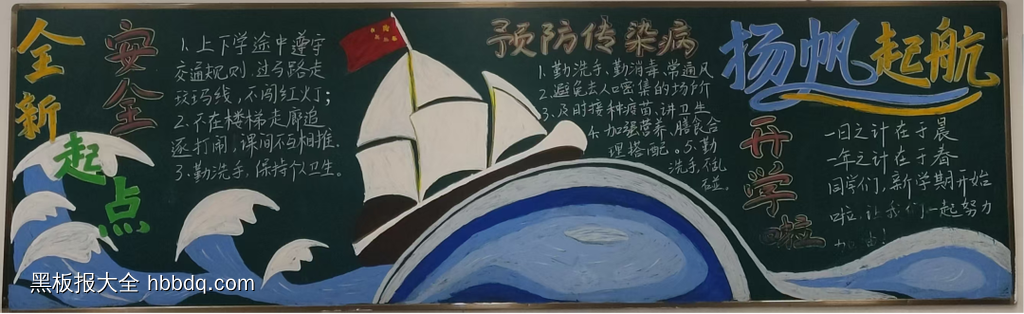 全新
起点
安全
1、上下学途中遵守
交通规则,过马路走
斑马线,不闯红灯;
2、不在楼梯走廊追
逐打闹,课间不互相推
3、勤洗手,保持个卫生。
预防传染病
1、勤洗手、勤消毒、常通风
2、避免去人口密集的场所
3、及时接种疫苗、讲卫生
4、加强营养、膳食合
理搭配。5、勤
洗手、不乱
碰。
扬帆起航
开学啦
一日之计在于晨
一年之计在于春
同学们,新学期开始
啦,让我们一起努力
黑板报大全 hbbdq.com